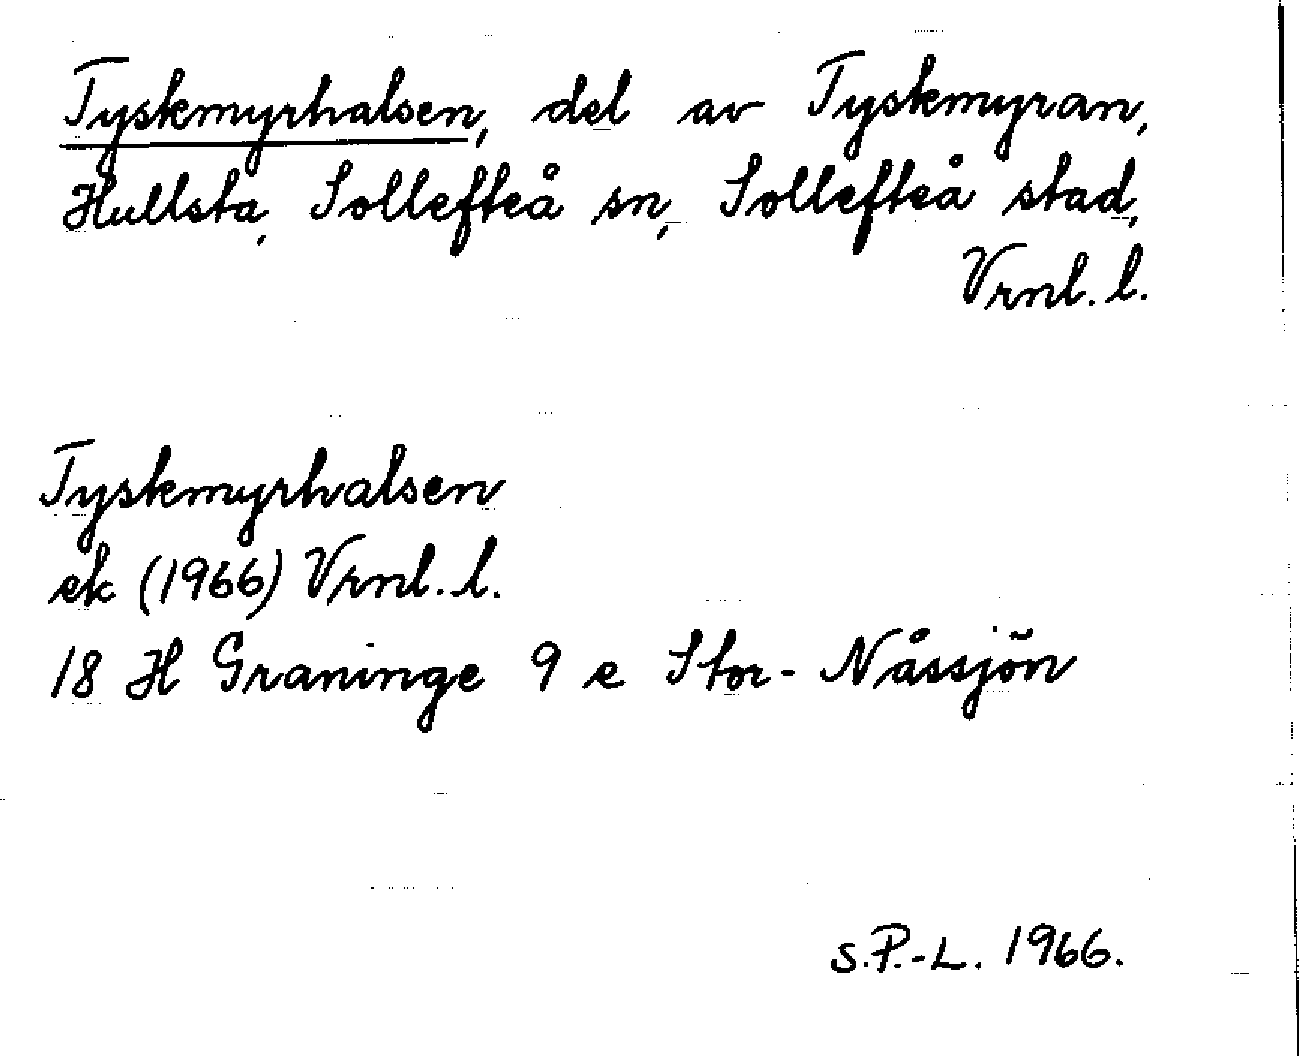 Tyskmyrhalsen, del av Tyskmyran,
Hullsta, Sollefteå sn, Sollefteå stad,
Vrnl. l.
Tyskmyrhalsen
ek (1966) Vrnl. l.
18 H Graninge 9 e Stor-Nåssjön
S.P.-L. 1966.